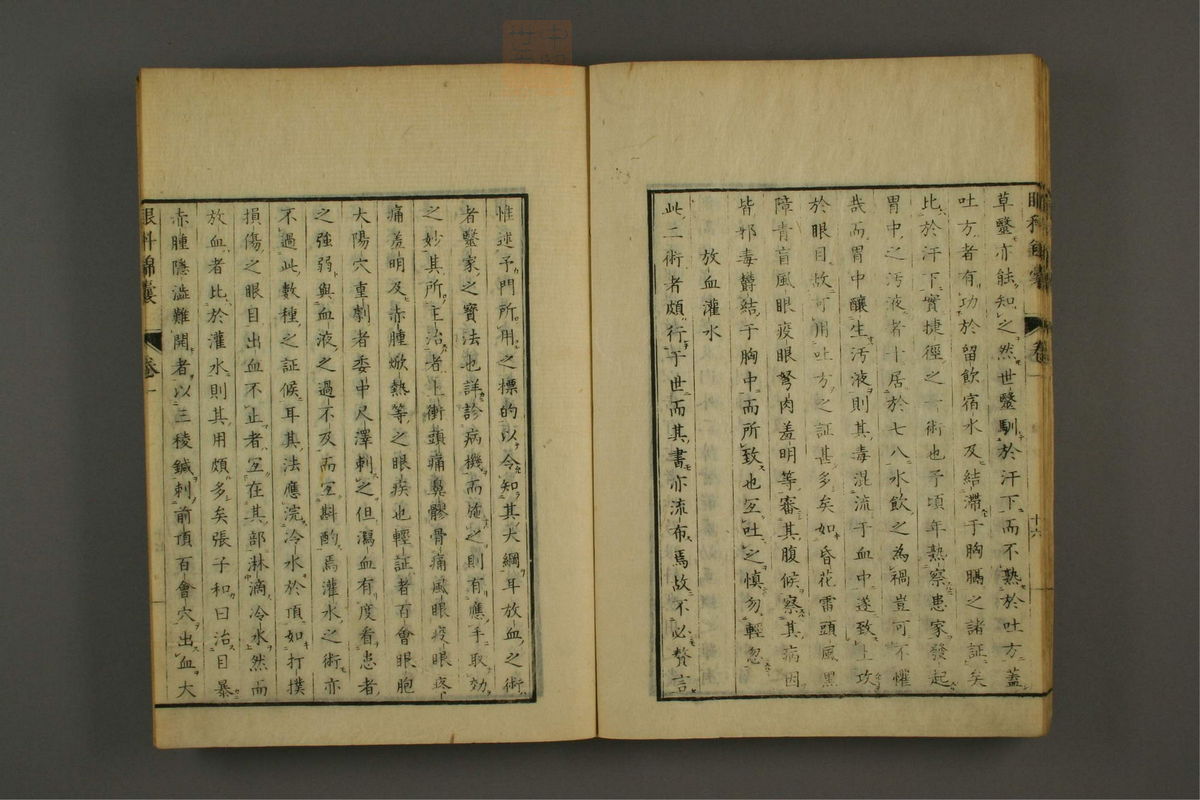 草毉亦能知之然世毉馴於汗下而不熟於吐方蓋
吐方者有功於留飲宿水及結滯于胸膈之諸証矣
比於汗下實捷徑之一術也予頃年熟察患家發起
胃中之汚液者十居於七八水飲之為禍豈可不懼
哉而胃中釀生汚液則其毒混流于血中遂致上攻
於眼目故可用吐方之証甚多矣如昏花雷頭風黑
障青盲風眼疫眼胬肉羞明等審其腹候察其病因
皆邪毒欝結于胸中而所致也宜吐之慎勿輕忽
放血灌水
此二術者頗行于世而其書亦流布焉故不必贅言
惟述予門所用之標的以令知其大綱耳放血之術
者毉家之寳法也詳診病機而施之則有應手取効
之妙其所主治者上衝頭痛鼻髎骨痛風眼疫眼疼
痛羞明及赤腫焮熱等之眼疾也輕証者百會眼胞
大陽穴重劇者委中尺澤刺之但瀉血有度看患者
之強弱與血液之過不及而宜斟酌焉灌水之術亦
不過此數種之証候耳其法應浣冷水於頂如打撲
損傷之眼目出血不止者宜在其部淋滴冷水然而
放血者比於灌水則其用頗多矣張子和曰治目暴
赤腫隱澁難開者以三稜鍼刺前頂百會穴出血大
眼科錦囊 卷一
十六
眼科錦囊 卷一